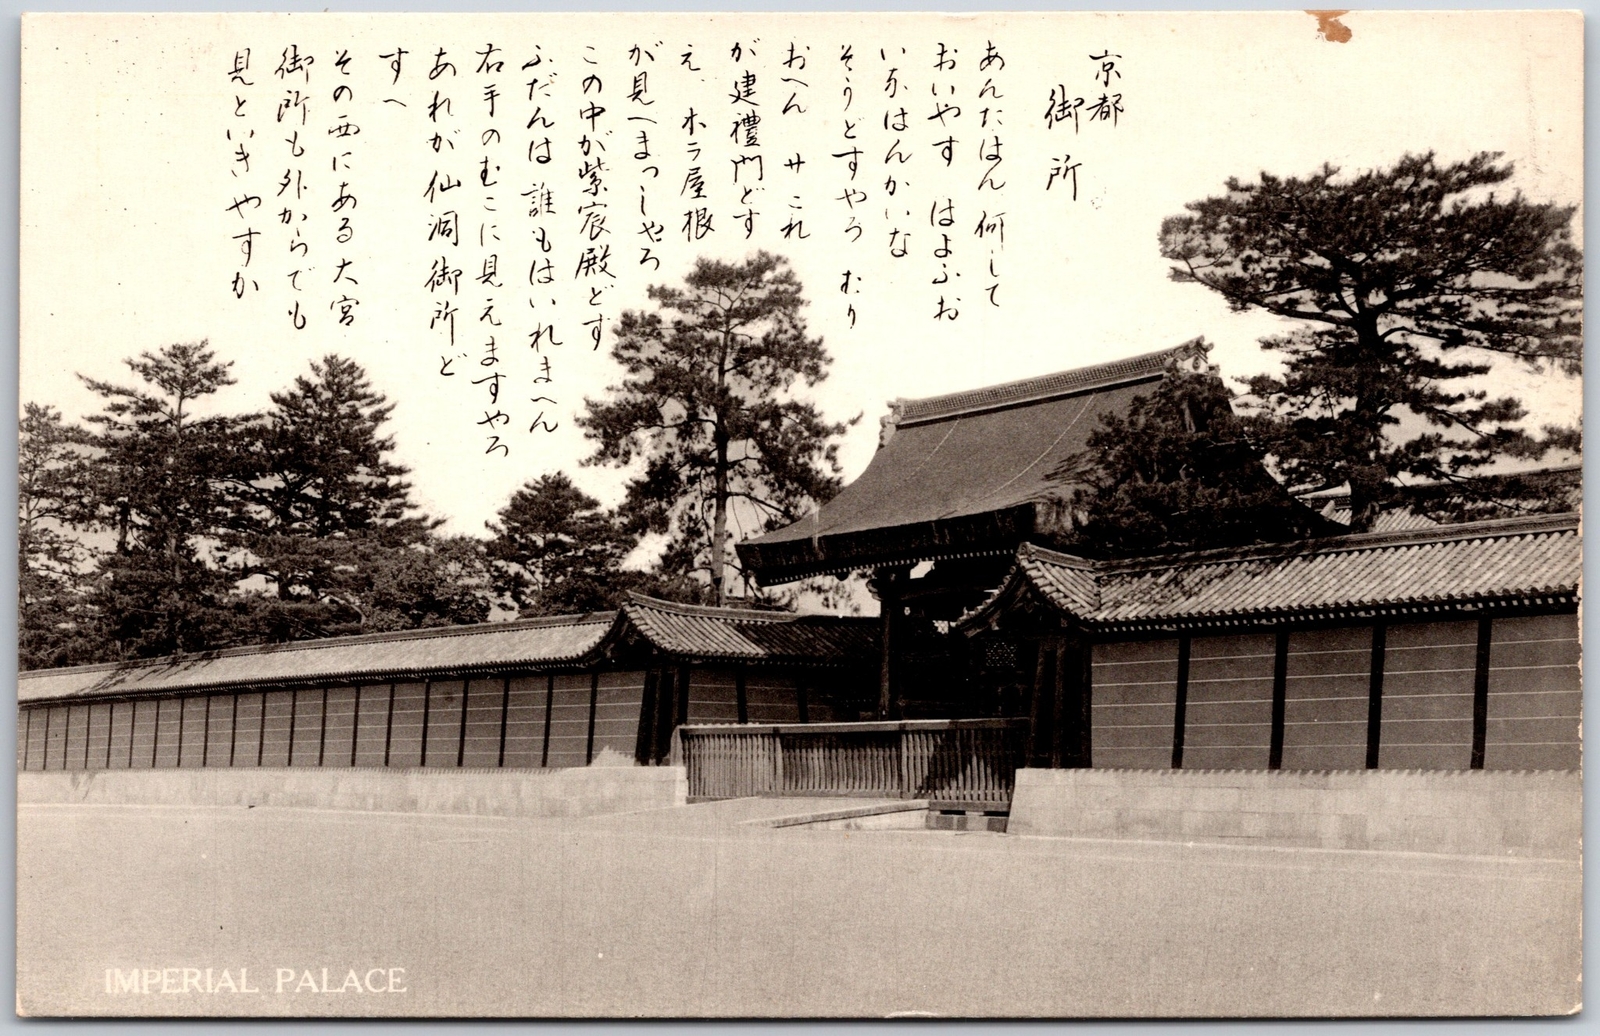 京都
御所
あんたはん 何して
おいやす はよふお
いなはんかいな
そうどすやろ むり
おへん サ これ
が建禮門どす
え、ホラ屋根
が見へまっしゃろ
この中が紫宸殿どす
ふだんは 誰もはいれまへん
右手のむこに見えますやろ
あれが 仙洞御所ど
すへ
その西にある大宮
御所も外からでも
見といきやすか
IMPERIAL PALACE